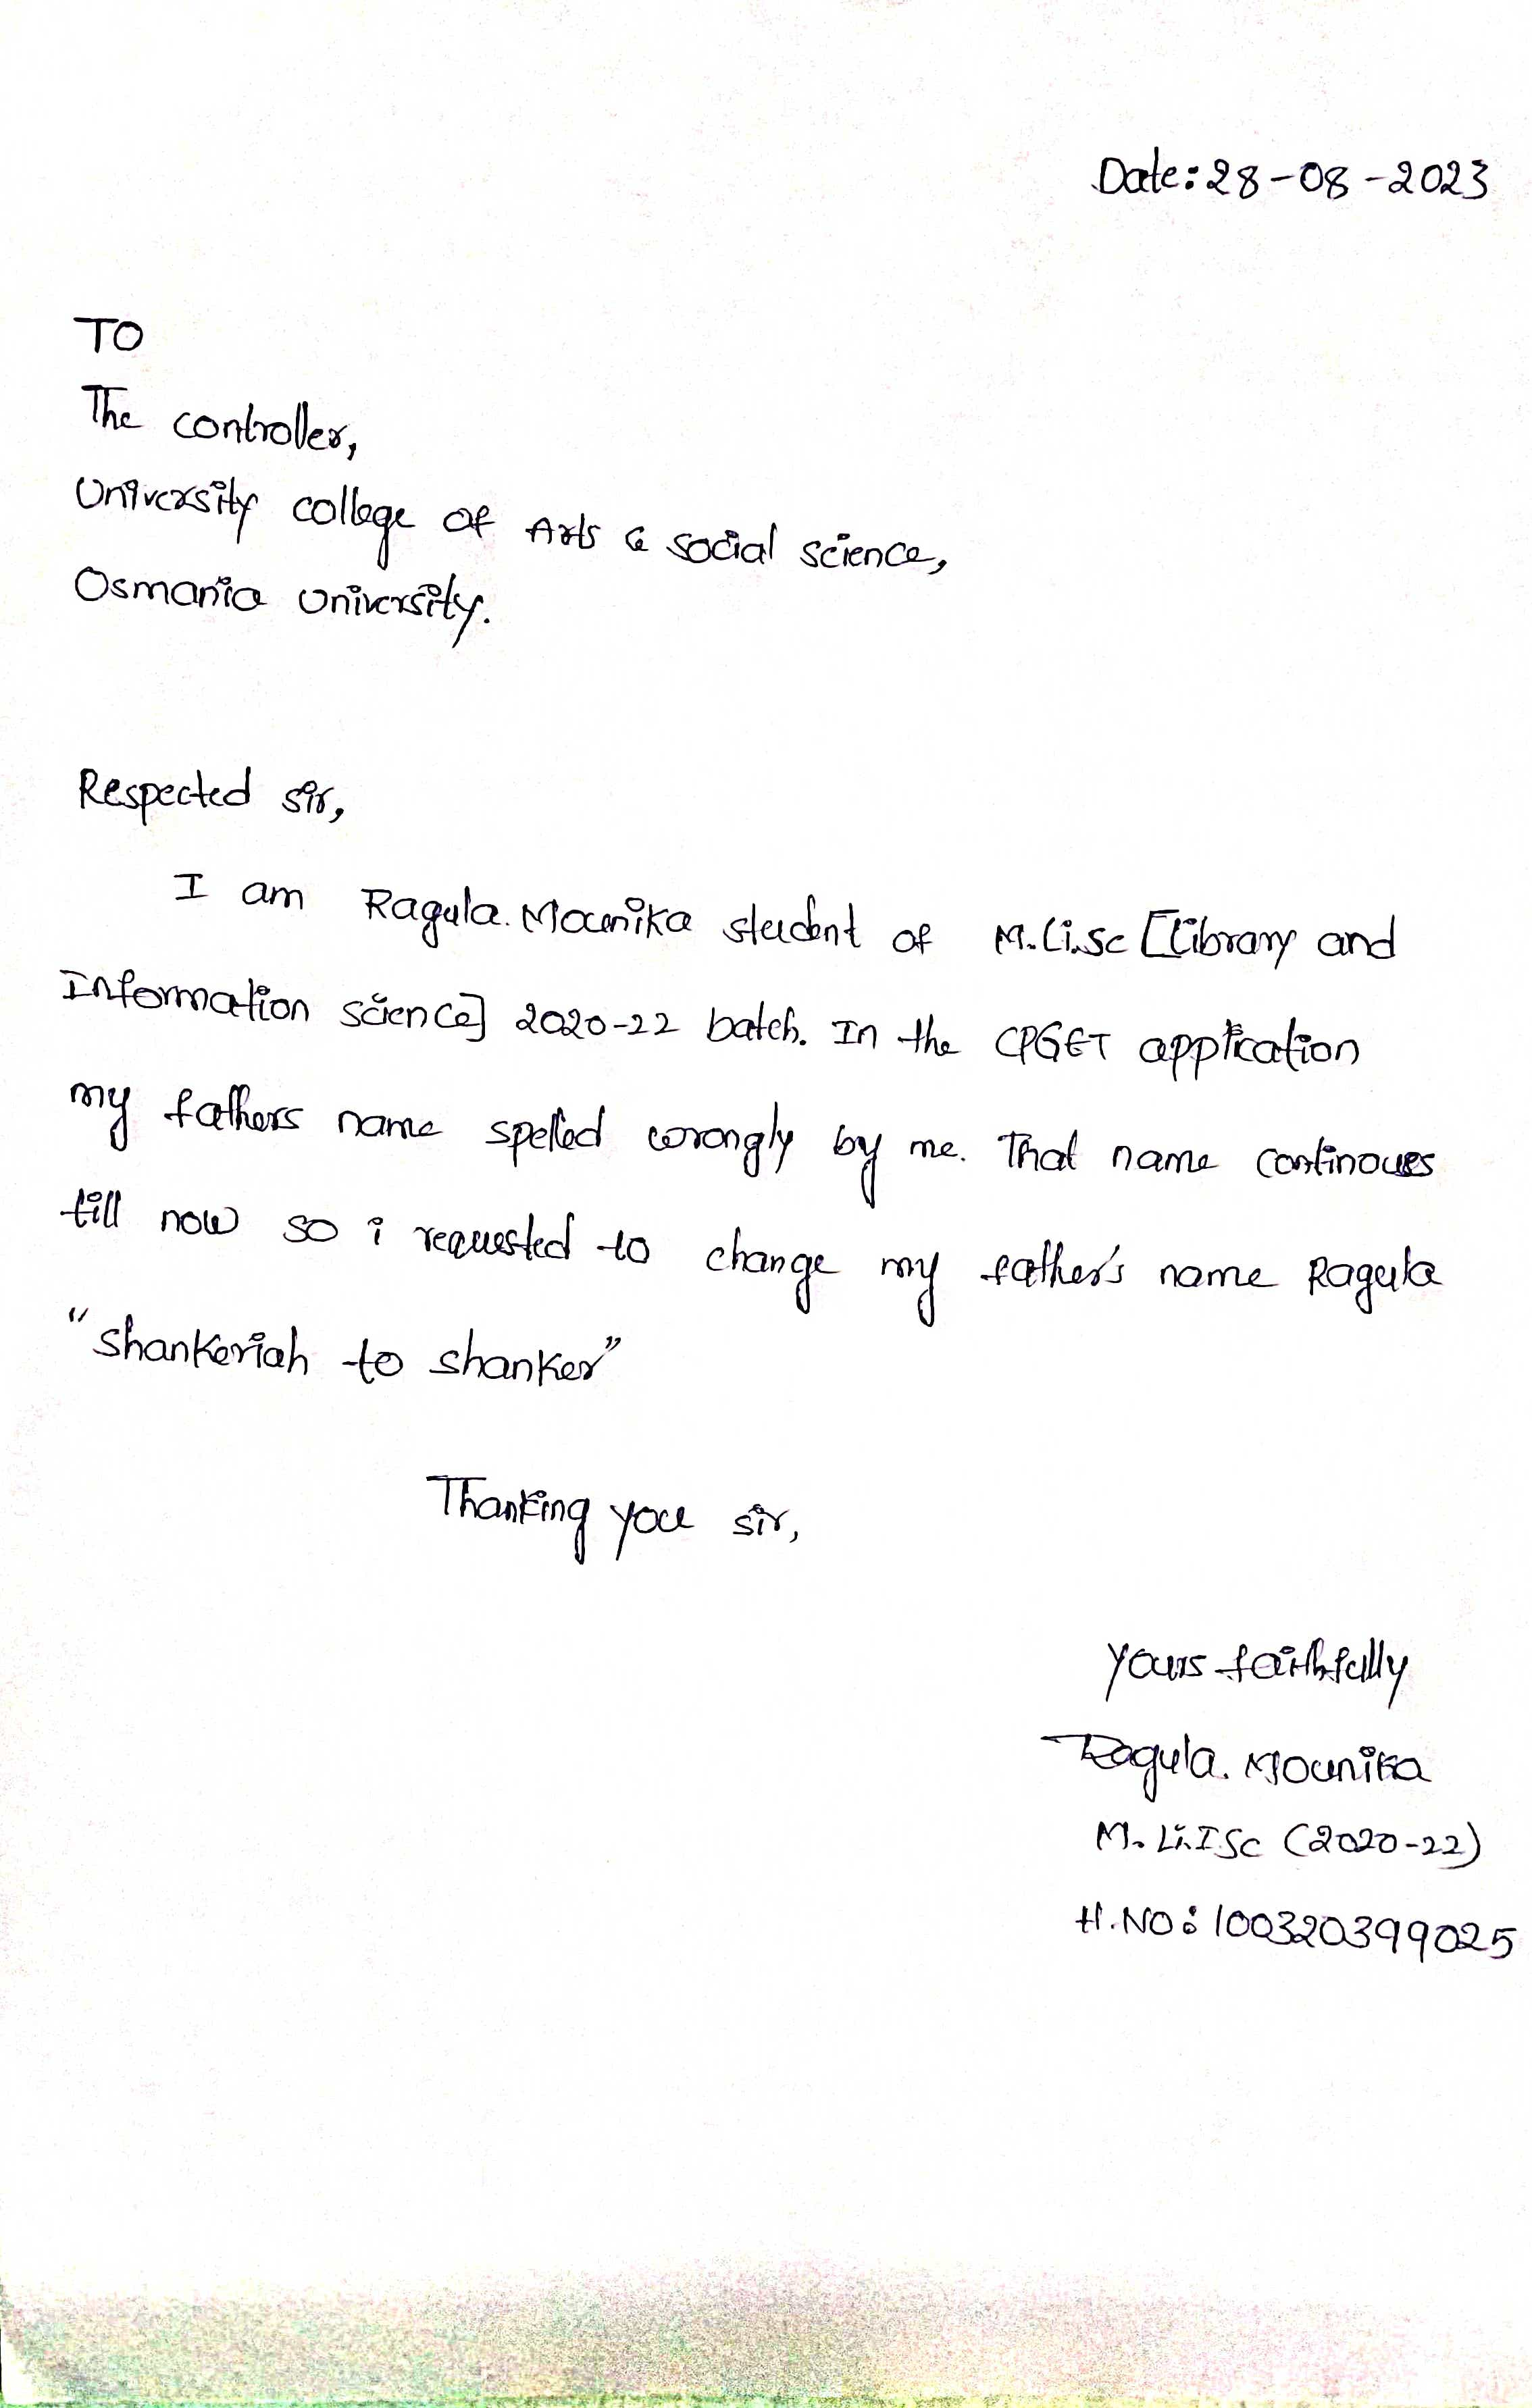 Date: 28-08-2023
TO
The controller,
University college of Arts & social science,
Osmania University.
Respected sir,
I am Ragula. Mounika student of M.Li.sc [Library and
Information science] 2020-22 batch. In the CPGET application
my fathers name spelled wrongly by me. That name continoues
till now so i requested to change my father's name Ragula
"shankeriah to shanker"
Thanking you sir,
yours faithfully
Ragula. Mounika
M. Li.I.Sc (2020-22)
H.NO: 100320399025